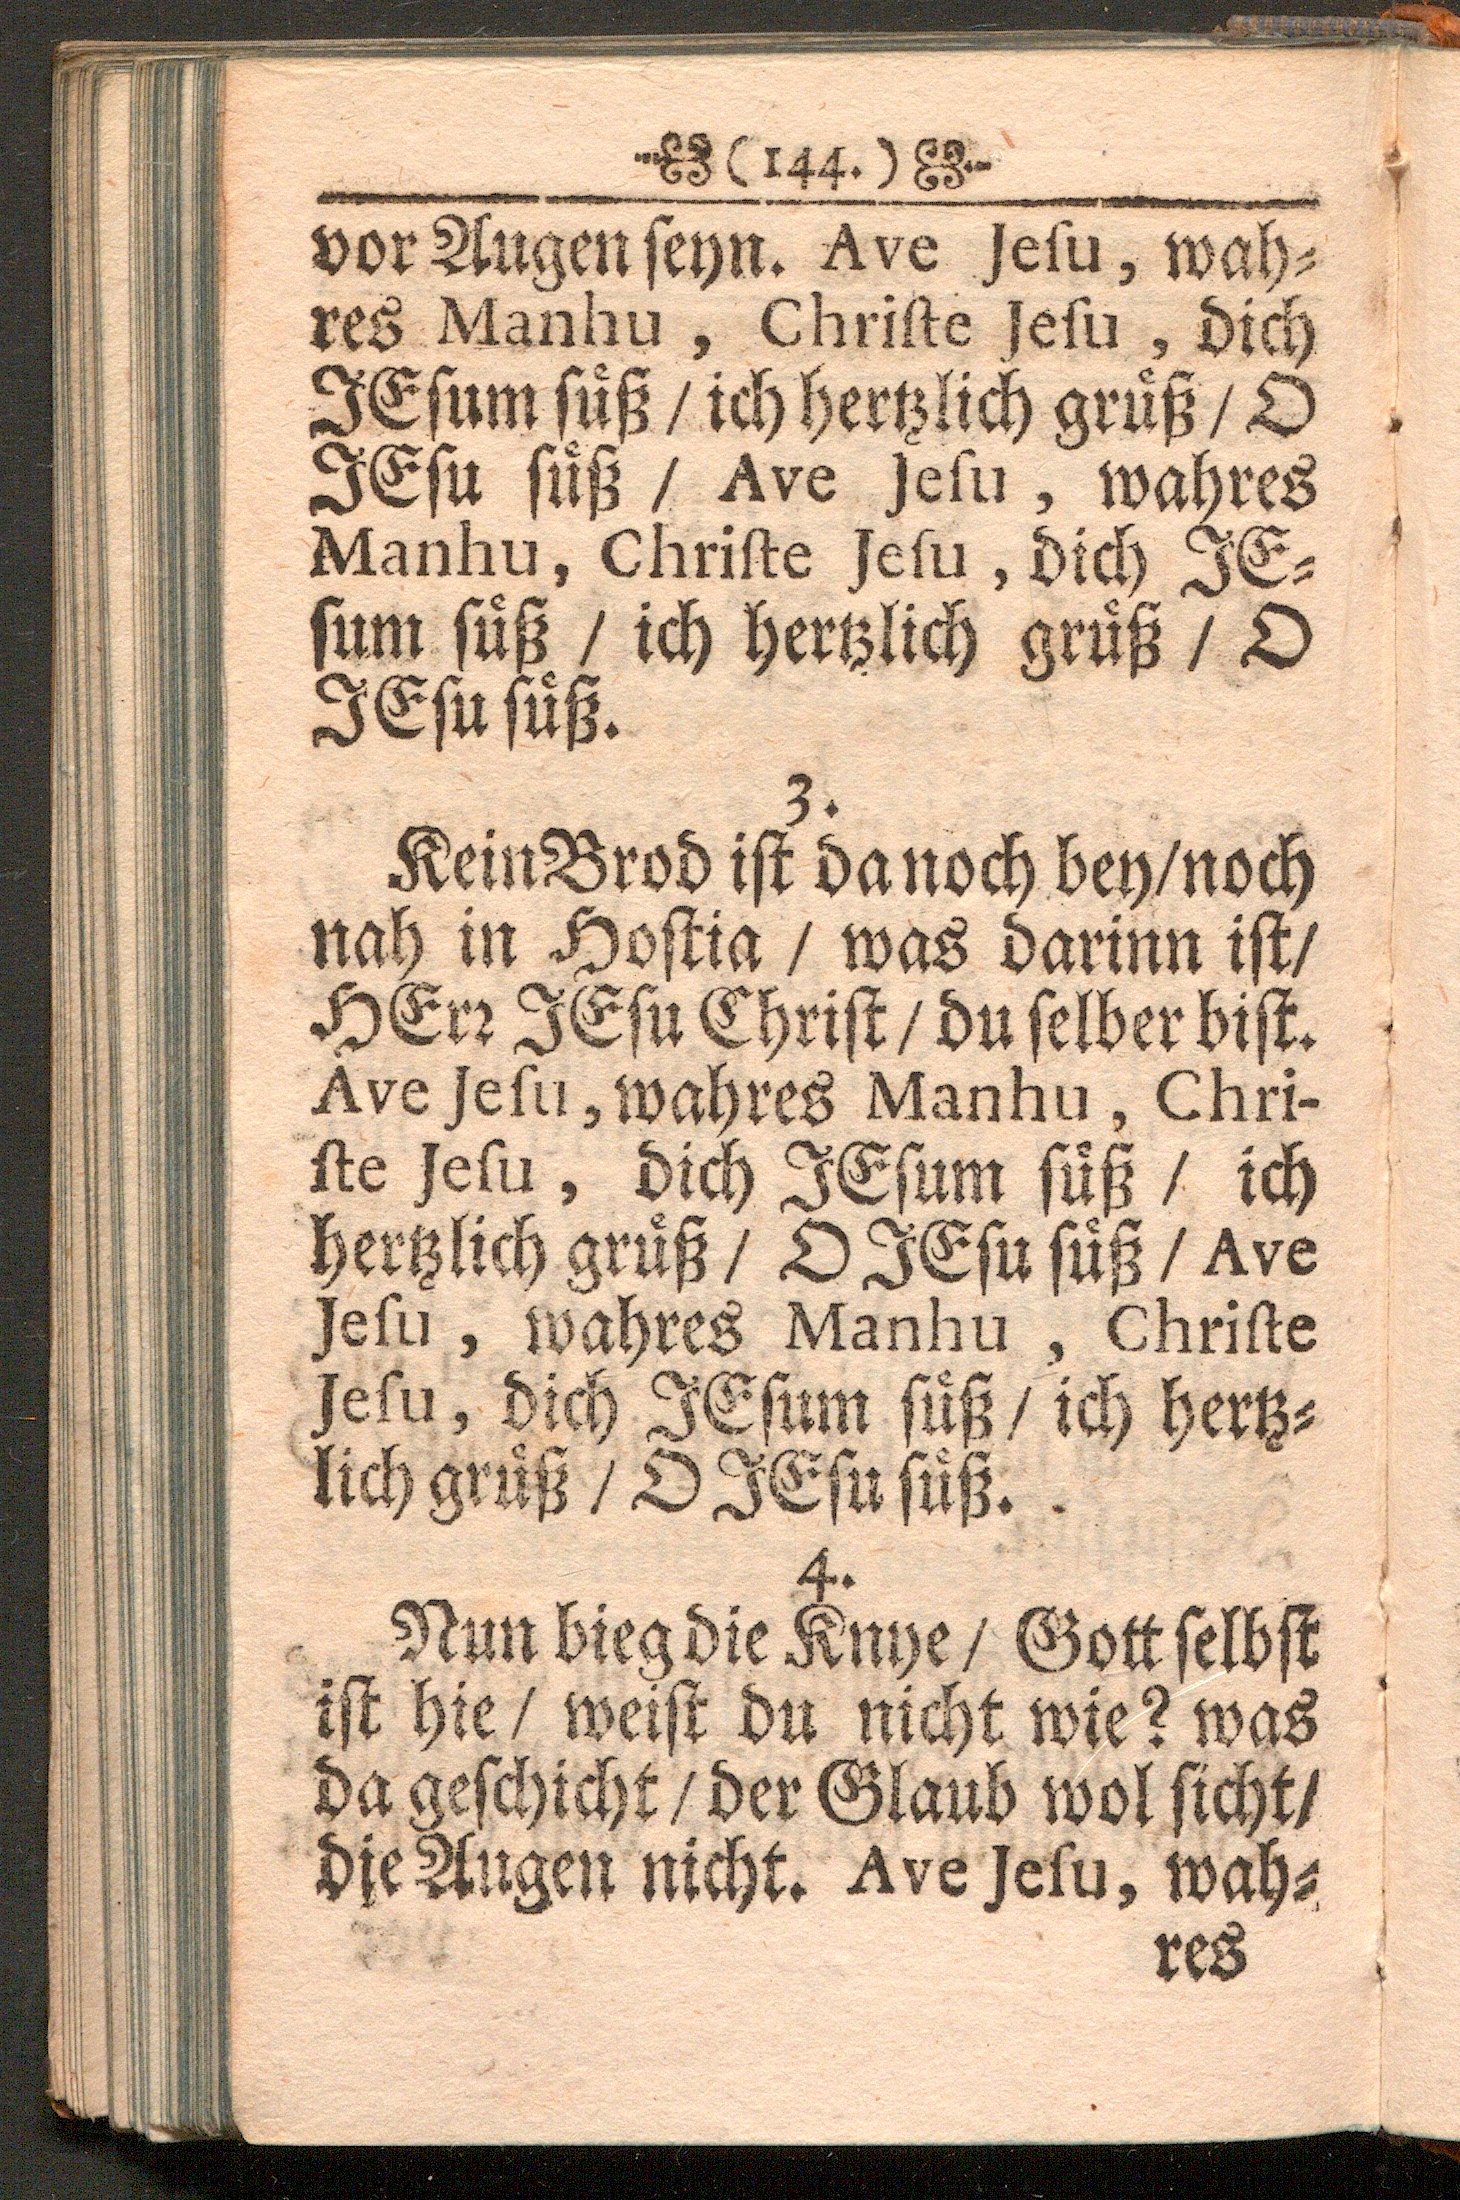 (144.)
vor Augen ſeyn. Ave Jeſu, wah⸗
res Manhu, Chriſte Jeſu, dich
JEſum ſuͤß / ich hertzlich gruͤß / O
JEſu ſuͤß / Ave Jeſu, wahres
Manhu, Chriſte Jeſu, dich JE⸗
ſum ſuͤß / ich hertzlich gruͤß / O
JEſu ſuͤß.
3.
Kein Brod iſt da noch bey / noch
nah in Hoſtia / was darinn iſt /
HErꝛ JEſu Chriſt / du ſelber biſt.
Ave Jeſu, wahres Manhu, Chri-
ſte Jeſu, dich JEſum ſuͤß / ich
hertzlich gruͤß / O JEſu ſuͤß / Ave
Jeſu, wahres Manhu, Chriſte
Jeſu, dich JEſum ſuͤß / ich hertz⸗
lich gruͤß / O JEſu ſuͤß.
4.
Nun bieg die Knye / Gott ſelbſt
iſt hie / weiſt du nicht wie? was
da geſchicht / der Glaub wol ſicht /
die Augen nicht. Ave Jeſu, wah⸗
res